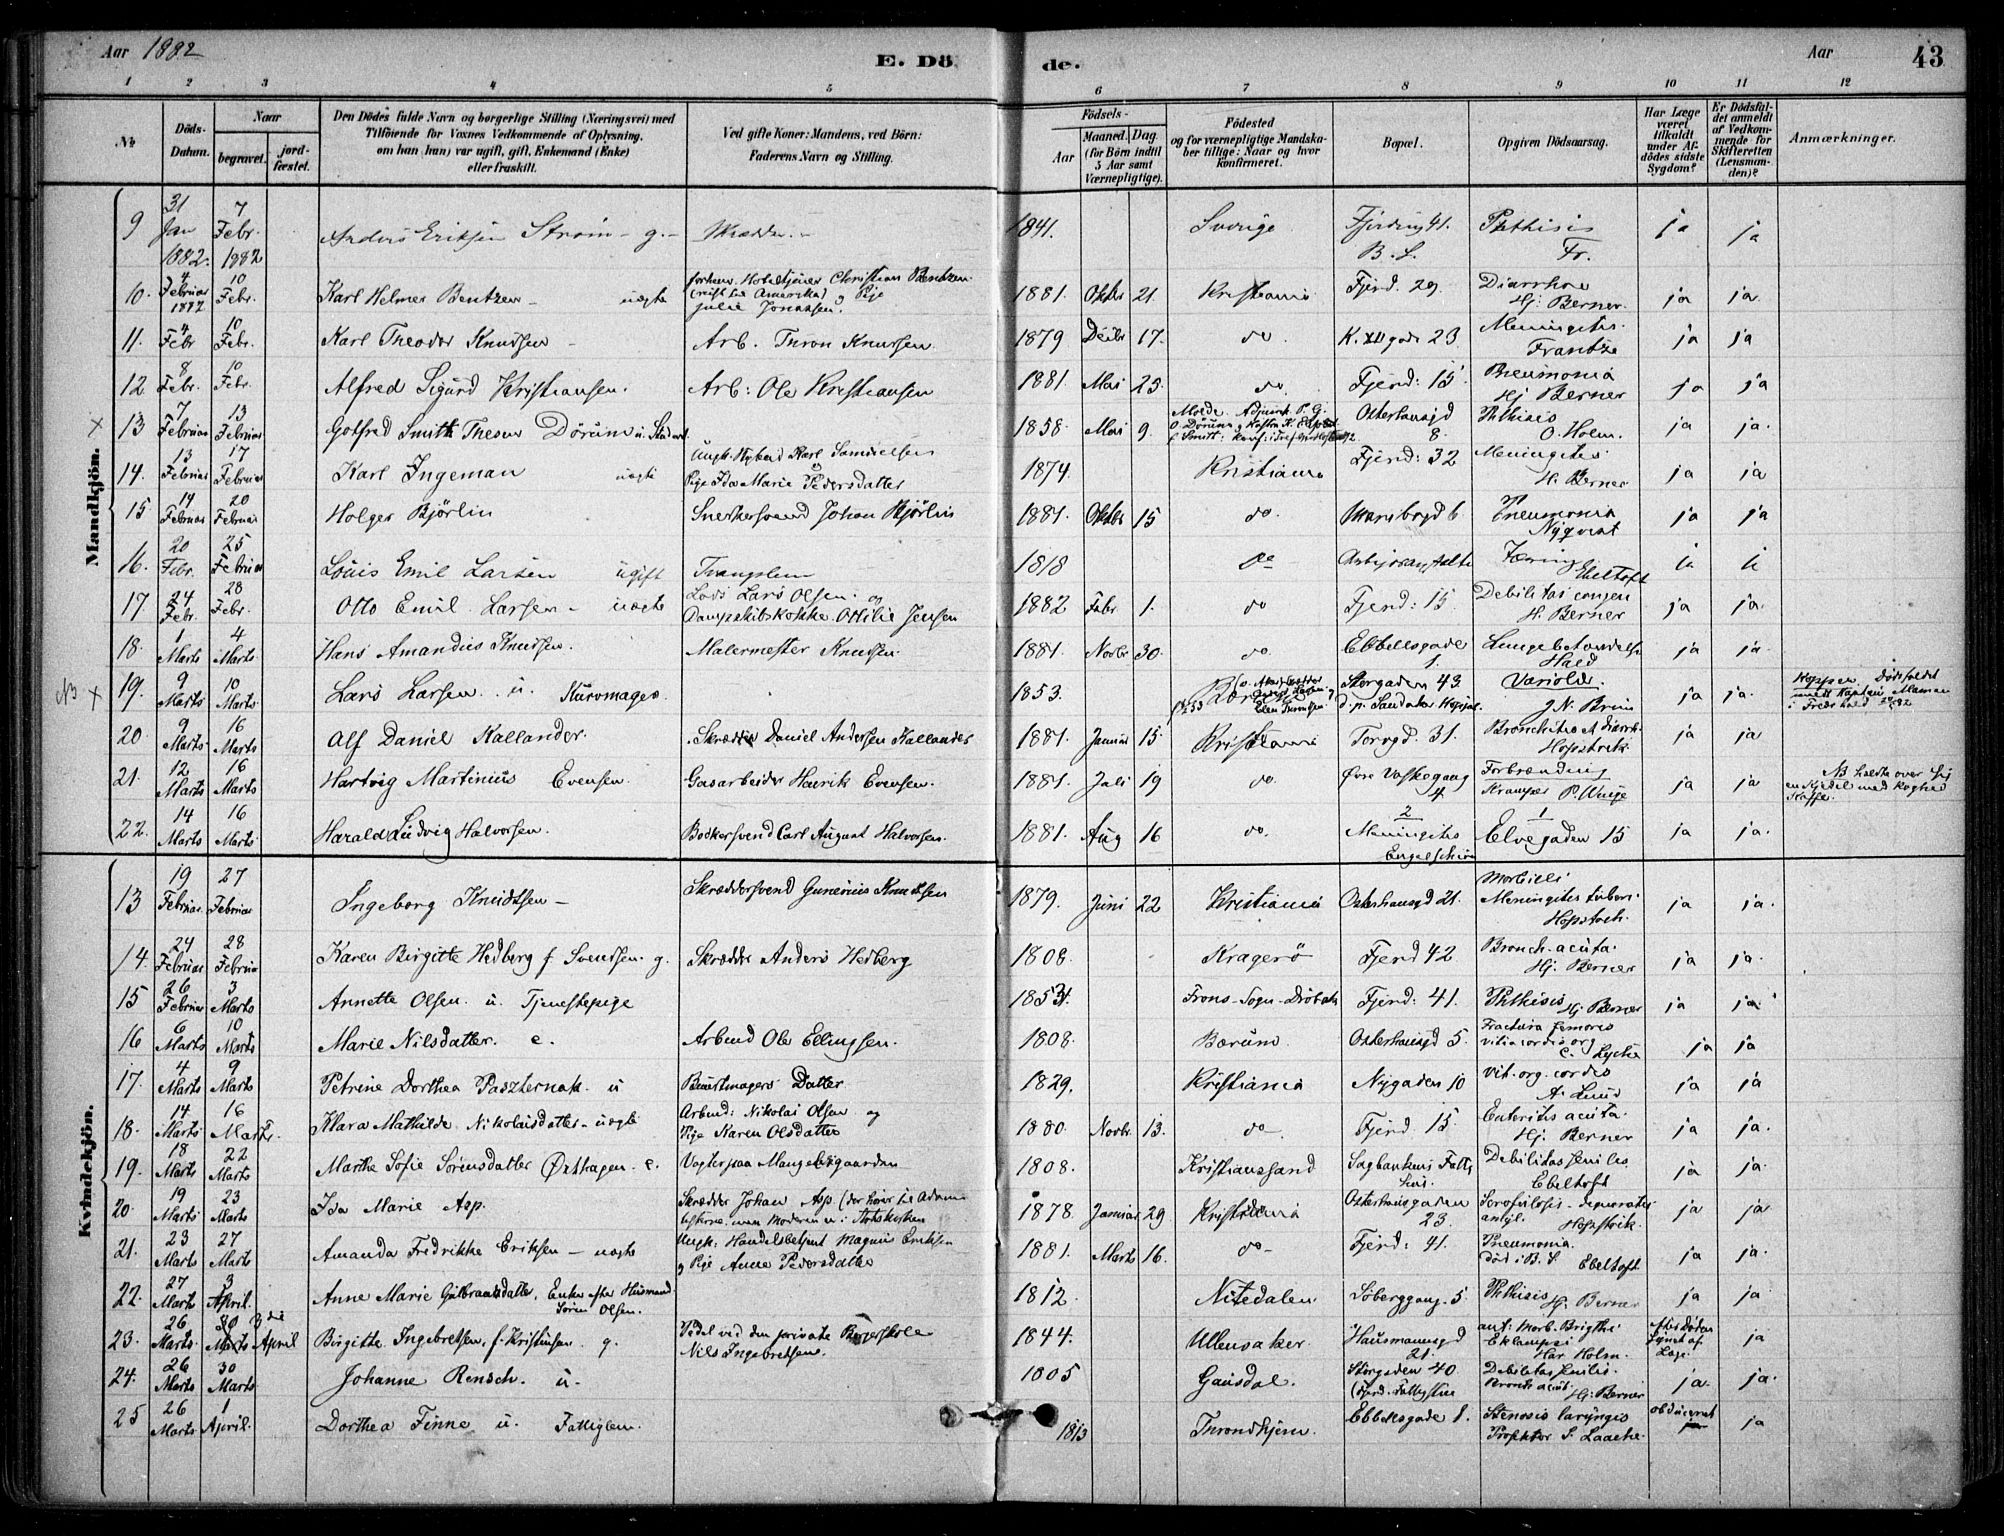 Aar 1882
E. Dö
de.
Aar
43
1 2 3 4 5 6 7 8 9 10 11 12
No
Döds-Datum.
Naar
begravet.
jord-fæstet.
Den Dödes fulde Navn og borgerlige Stilling (Næringsvei) med
Tilföiende for Voxnes Vedkommende af Oplysning,
om han (hun) var ugift, gift, Enkemand (Enke)
eller fraskilt.
Ved gifte Koner: Mandens, ved Börn:
Faderens Navn og Stilling.
Födsels-
Aar
Maaned. Dag.
(for Börn indtil
5 Aar samt
Værnepligtige).
Födested
og for værnepligtige Mandska-
ber tillige: Naar og hvor
konfirmeret.
Bopæl.
Opgiven Dödsaarsag.
Har Læge
været
tilkaldt
under Af-
dödes sidste
Sygdom?
Er Dödsfal-
det anmeldt
af Vedkom-
mende for
Skifteretten
(Lensman-
den)?
Anmærkninger.
Mandkjön.
9 31 Jan 1882. 7 Febr. 1882 Anders Eriksen Ström - g. - Skrædder - 1841. Sverige Fjerding 41. B. S. Phthisis Fr. ja ja
10. 4 Februar 1882 10 Febr. Karl Helmer Bentzen - uægte forhenv. Hoteltjener Christian Bentzen (reist til Amerika) og Pige Julie Jonassen. 1881. Oktbr 21. Kristiania Fjerd. 29. Diarrhoe Hj. Berner. ja ja.
11. 4 Febr 10 Febr. Karl Theodor Knudsen - Arb. Thron Knudsen. 1879 Decbr 17. do K. XII gade 23 Meningitis. Frantze ja ja
12 8 Febr. 10 Febr. Alfred Sigurd Kristiansen. Arb: Ole Kristiansen 1881. Mai 25. do Fjerd: 15 Pneumonia Hj Berner ja ja
x 13 7 Februar 13 Februar Gotfred Smith Thesen Dörum u. Student 1858. Mai 9. Molde. Adjunkt P. G. O. Dörum og Osterhausgd 8. Phthisis O. Holm. ja ja.
14. 13 Februar 17 Februar Karl Ingeman uægte Ungk. Karl Samuelsen og Pige Ida Marie Pedersdatter 1874. Kristiania Fjerd: 32 Meningitis. H. Berner ja ja
15 14 Februar 20 Februar Holger Björlin Snekkersvend Johan Björlin 1881. Oktbr 15 do. Maribogd 6 Pneumonia Nyqvist ja ja
16. 20 Febr. 25 Februar Louis Emil Larsen ugift Tvangslem 1818 do Arbeidsanstalten Tæring Ebeltoft ja ja
17. 24 Febr. 28 Febr. Otto Emil Larsen - uægte Lods Lars Olsen. og Dampskibskokke Ottilie Jensen 1882 Febr 1. do Fjerd: 15. Debilitas congen H. Berner ja ja.
18. 1 Marts 4 Marts. Hans Amandus Knudsen. Malermester Knudsen 1881. Novbr 30. do. Ebbellsgade 1. Lungebetændelse Hald ja ja.
NB x 19. 9 Marts. 10 Marts. Lars Larsen. u. Kurvmager. 1853. Storgaden 43 d. p. Sandaker Hospital. Variolæ. J. N. Bruun ja ja. Kopper. Dödsfaldet
20 9 Marts. 16 Marts. Alf Daniel Kallander. Skrædder Daniel Andersen Kallander 1881. Januar 15. Kristiania Torvgd. 31. Bronchitis et Diarrh. Hopstock. ja ja
21. 12 Marts 16 Marts. Hartvig Martinius Evensen. Gasarbeider Henrik Evensen. 1881. Juli 19 do. Övre Vaskegang 4. Forbrænding Kramper P. Winge ja ja NB hældte over sig en Kjedel med koghed Kaffe.
22. 14 Marts 16 Marts. Harald Ludvig Halvorsen. Bödkersvend Carl August Halvorsen. 1881. Aug 16 do. 2 Meningitis Engelschiön 1 Elvegaden 15 ja ja.
Kvindekjön.
13 19 Februar. 27 Februar Ingeborg Knudtsen - Skræddersvend Gunerius Knudtsen 1879. Juni 22 Kristiania Osterhausgd 21. Morbilli Meningitis tuberc. Hopstock. ja ja.
14. 24 Februar 28 Februar Karen Birgitte Hedberg f. Svendsen. g. Skrædder Anders Hedberg 1808. Kragerö Fjerd 42 Bronch. acuta. Hj. Berner ja ja.
15 26 Februar 3 Marts. Annette Olsen. u. Tjenestepige 1854. Frons-Sogn-Dröbak Fjerd: 41. Phthisis Hj. Berner ja ja
16 6 Marts 10 Marts Marie Nilsdatter. e. Arbmd Ole Ellingsen. 1808. Bærum Osterhausgd 5. Fractura femoris vitia cordis org C. Lyche ja ja
17. 4 Marts 9 Marts. Petrine Dorthea Paszternak. u Buntmagers Datter 1829. Kristiania Nygaden 10 Vit. org. cordis A. Lund ja ja
18. 14 Marts 16 Marts. Klara Mathilde Nikolaisdatter - uægte Arbmd: Nikolai Olsen og Pige Karen Olsdatter 1880. Novbr. 13. do Fjerd. 15. Enteritis acuta. Hj. Berner ja ja.
19. 18 Marts 22 Marts Marthe Sofie Sörensdatter Östhagen. e. Vægter paa Mangelsgaarden 1808. Kristianssand Sagbankens Fattighus. Debilitas senilis. Ebeltoft ja ja
20. 19 Marts 23 Marts Ida Marie Asp. Skrædder Johan Asp. 1878. Januar 29 Kristiania Osterhausgaden 23. Scrofulosis. Hopstock. ja ja
21. 23 Marts. 27 Marts Amanda Fredrikke Eriksen - uægte Ungk: Handelsbetjent Magnus Eriksen og Pige Anne Pedersdatter 1881. Marts 16. do Fjerd: 41. Pneumonia. Död i B. S. Ebeltoft ja ja.
22. 27 Marts 3 April. Anne Marie Gulbrandsdatter. Enke efter Husmand Sören Olsen. 1812 Nitedalen Söberggang. 5. Phthisis Hj. Berner ja ja
23. 26 Marts. 30 Marts 3die April Birgitte Ingebretsen, f. Kristiansen. g. Pedel ved den private Borgerskole Nils Ingebretsen. 1844. Ullensaker. Hausmannsgd 21. ant: Morb. Brigthi Eklampsi Har. Holm. ja
24. 26 Marts 30 Marts Johanne Rensch. u. 1805 Gausdal. Storgaden 40 Debilitas senilis. Bronch. acut. Hj. Berner ja. ja.
25 26 Marts. 1 April. Dorthea Finne u. Fattiglem. 1813 Throndhjem. Ebbellsgade 1. Stenosis laryngis Prosektor S. Laache. obduceret ja